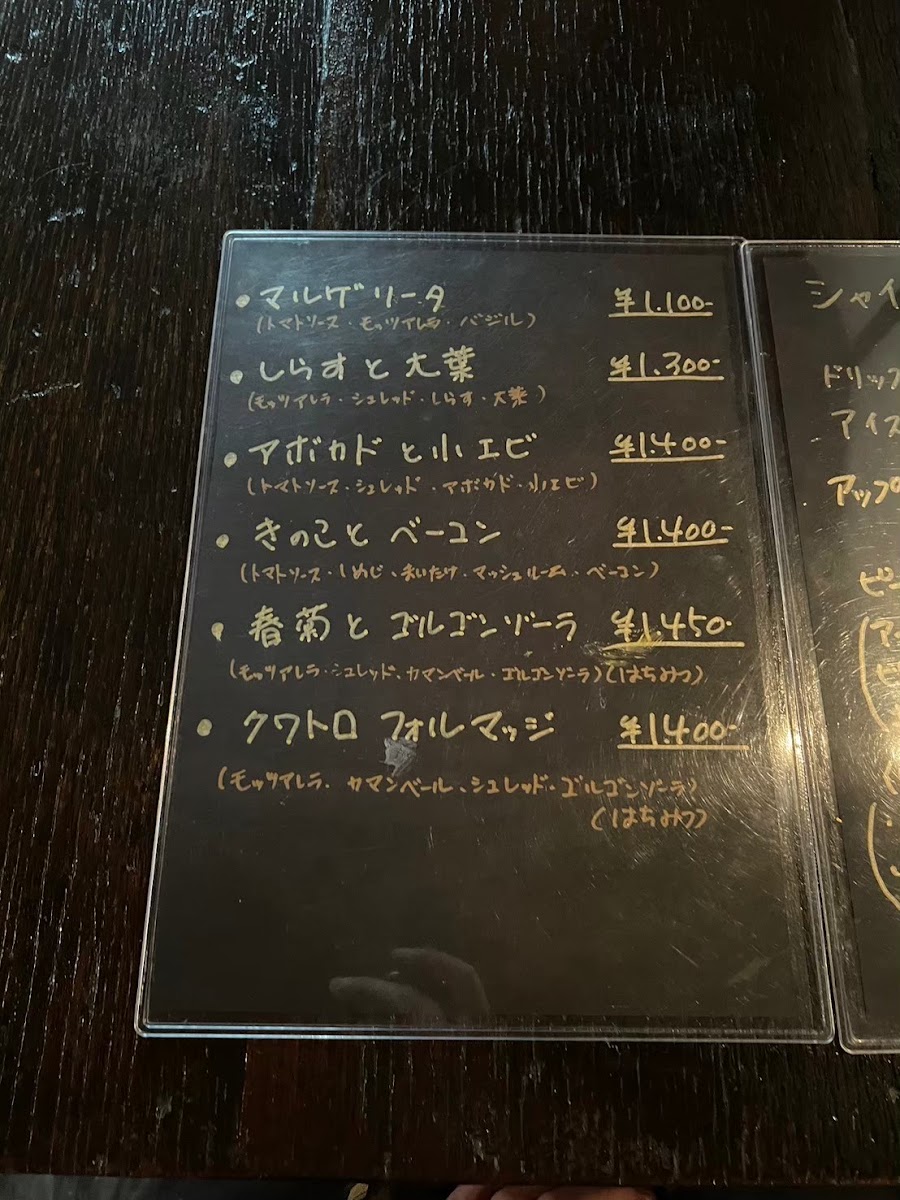 ・マルゲリータ ¥1.100-
(トマトソース・モッツァレラ・バジル)
・しらすと大葉 ¥1.300-
(モッツァレラ・シュレッド・しらす・大葉)
・アボカドと小エビ ¥1.400-
(トマトソース・シュレッド・アボカド・小エビ)
・きのことベーコン ¥1.400-
(トマトソース・しめじ・まいたけ・マッシュルーム・ベーコン)
・春菊とゴルゴンゾーラ ¥1.450-
(モッツァレラ・シュレッド・カマンベール・ゴルゴンゾーラ)(はちみつ)
・クワトロ フォルマッジ ¥1.400-
(モッツァレラ・カマンベール・シュレッド・ゴルゴンゾーラ)
(はちみつ)
シャイ
ドリップ
アイス
アップ